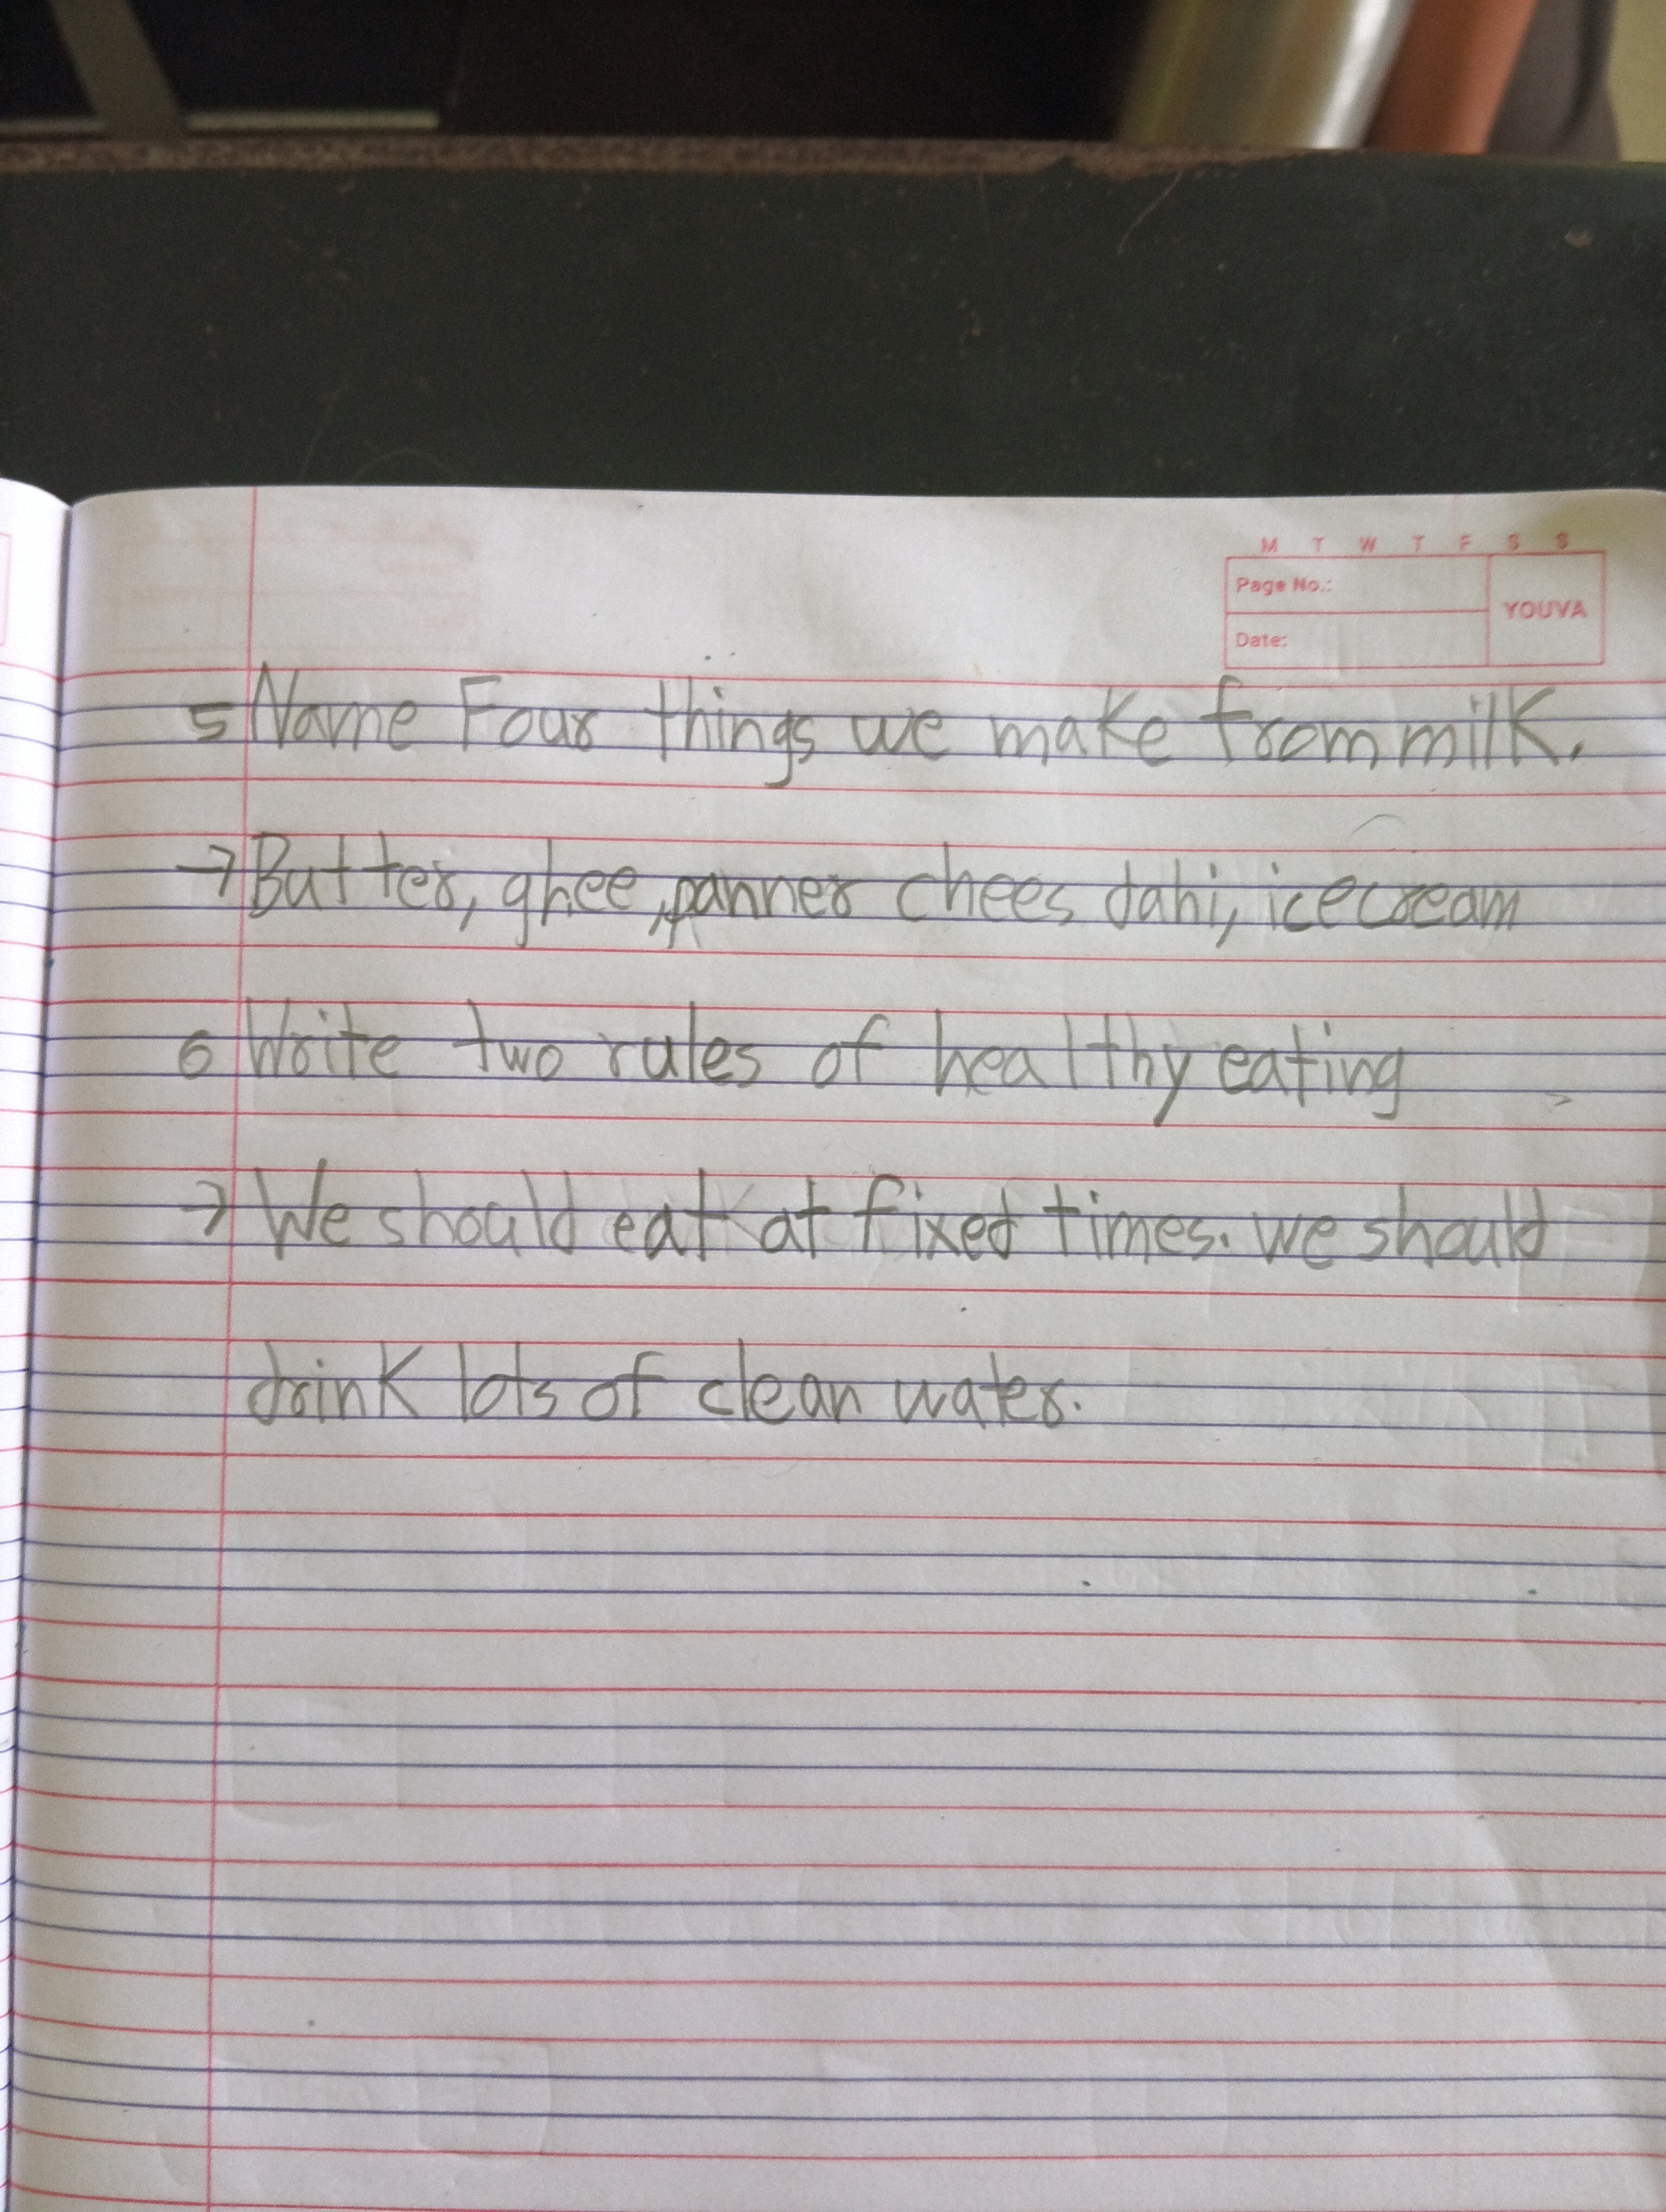 M T W T F S S
Page No.:
YOUVA
Date:
5 Name Four things we make from milk.
→ Butter, ghee, panner chees dahi, icecream
6 Write two rules of healthy eating
→ We should eat at fixed times. we should
drink lots of clean water.